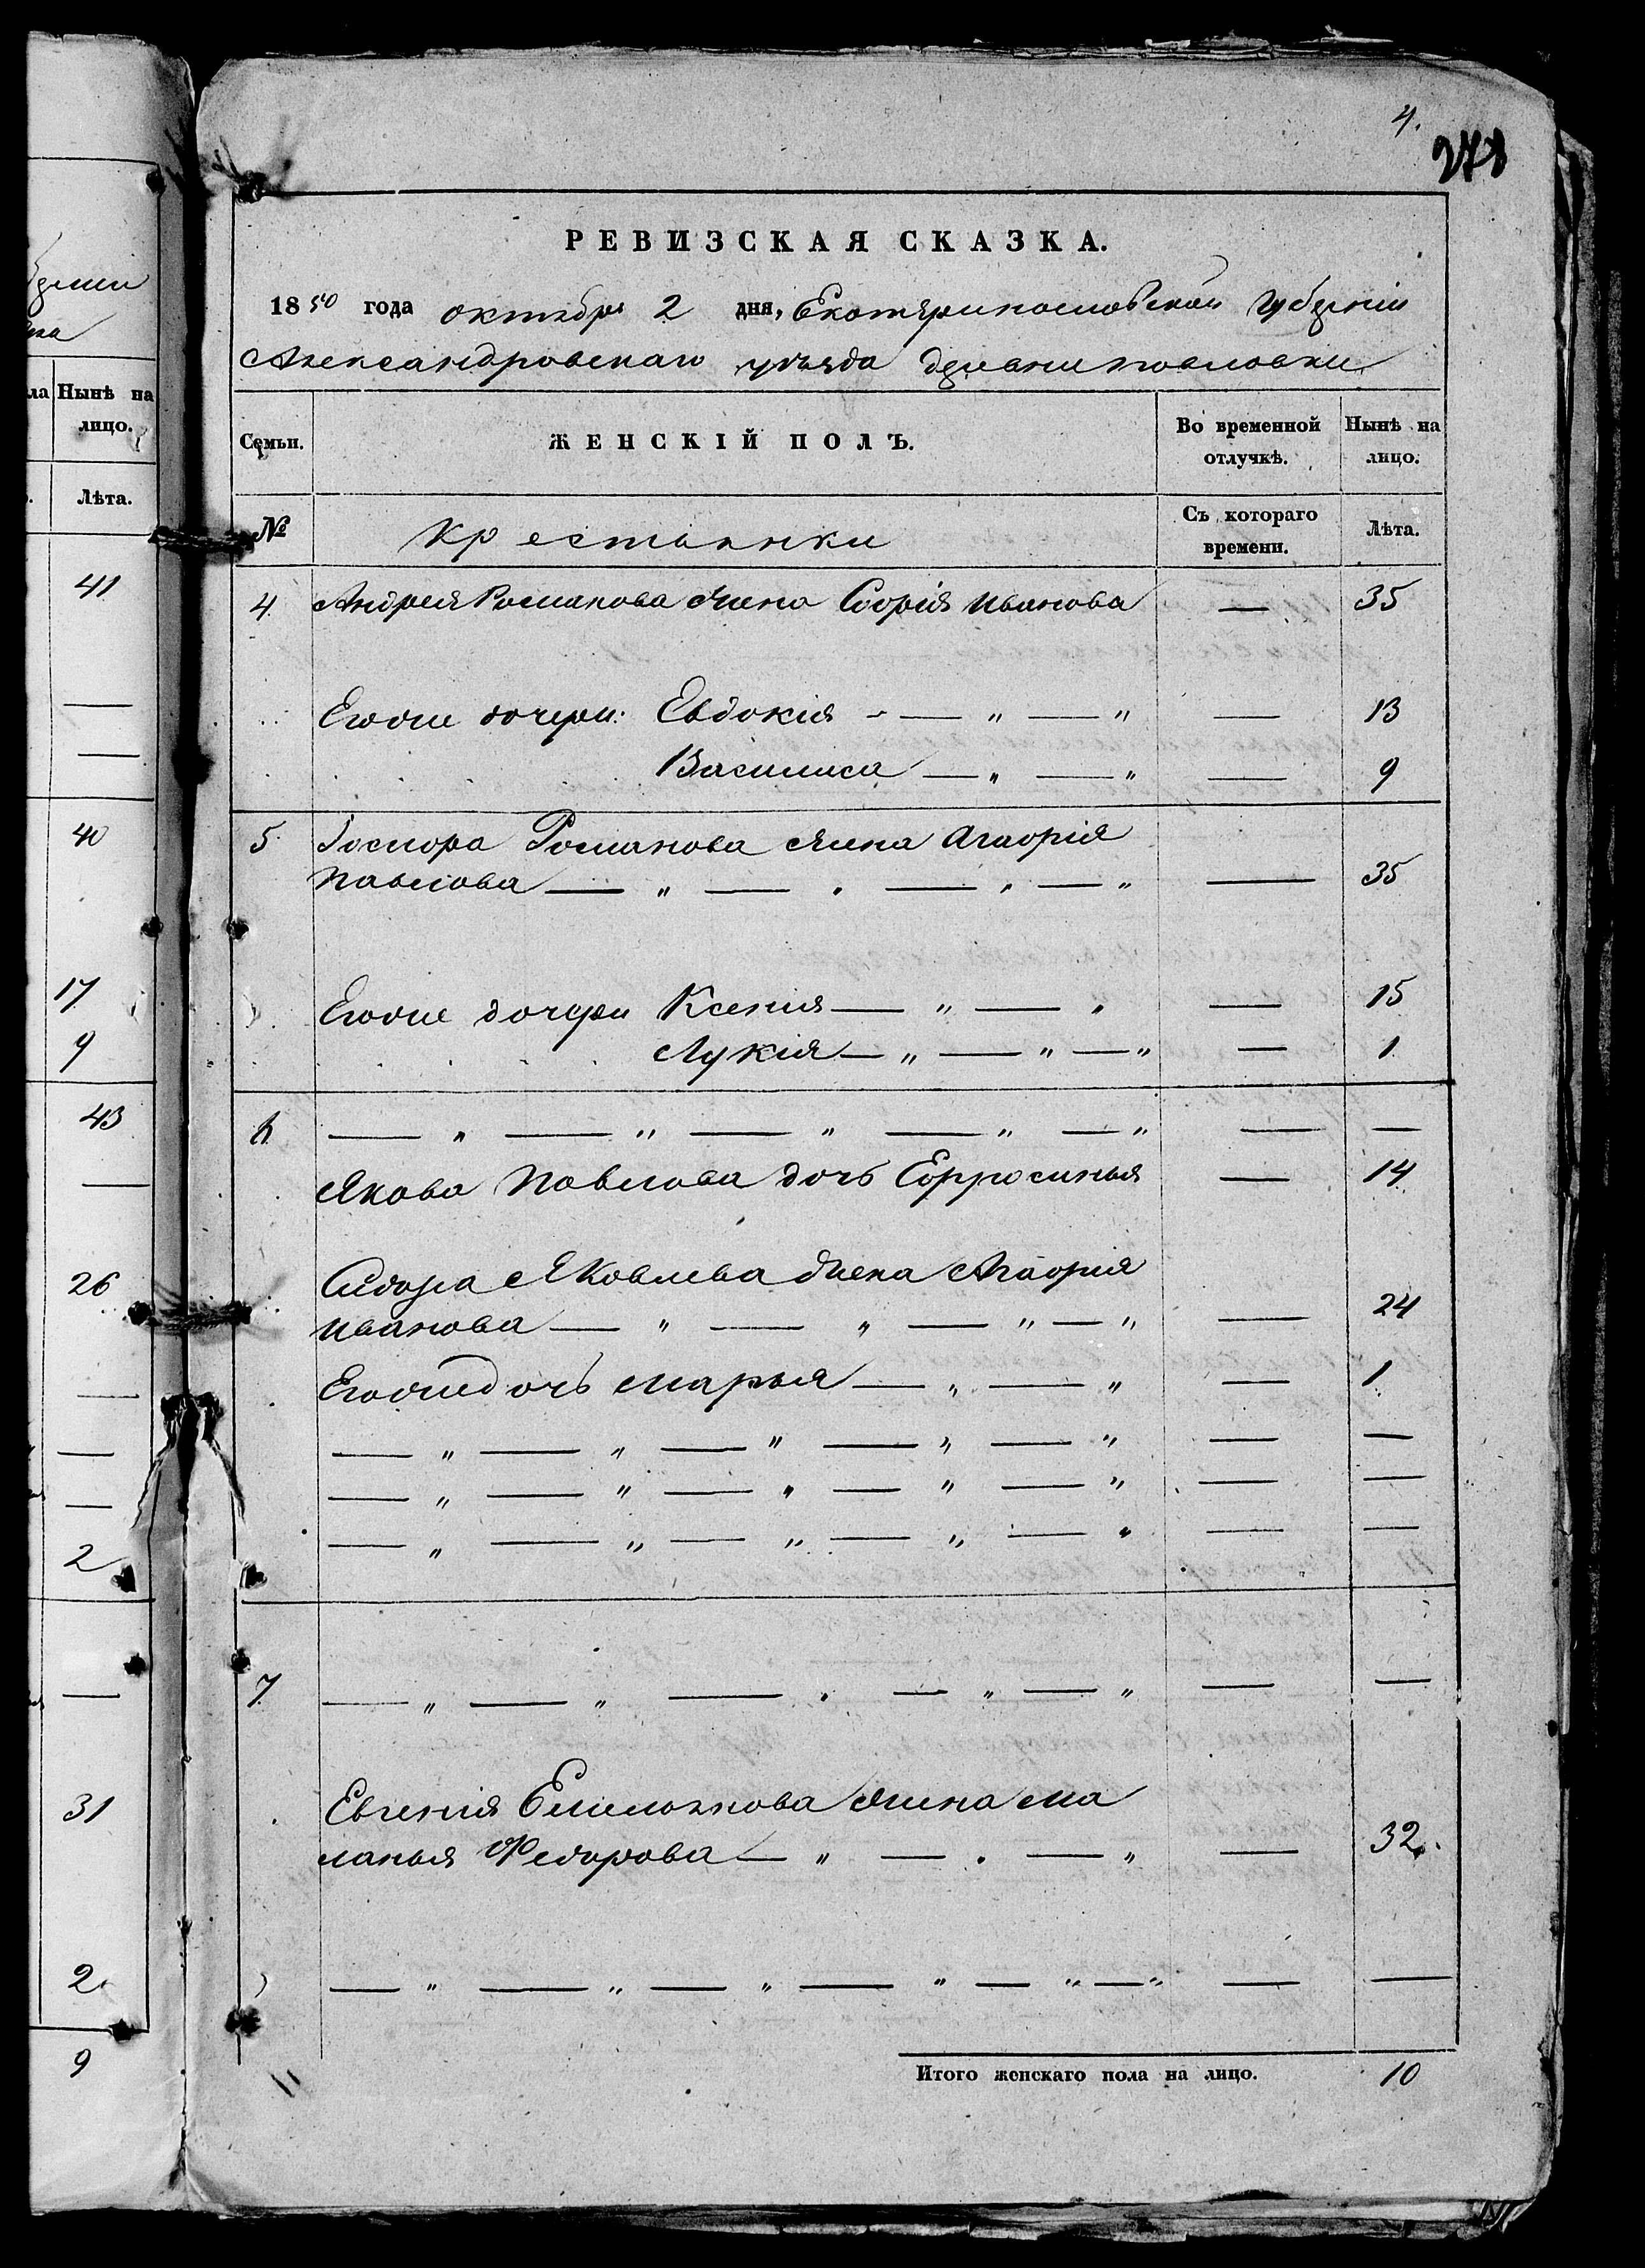 4.
278
РЕВИЗСКАЯ СКАЗКА.
1850 года октября 2 дня, Екатеринославской губерніи
Александровскаго уѣзда деревни Павловки
Семьи. ЖЕНСКІЙ ПОЛЪ. Во временной отлучкѣ. Нынѣ на лицо.
№ Крестьянки Съ котораго времени. Лѣта.
4 Андрея Романова жена Софія Иванова — 35
Егоже дочери: Евдокія — „ — „ — 13
Василиса — „ — „ — 9
5 Романова жена Агафія
Павлова — „ — „ — „ — „ — 35
Егоже дочери Ксенія — „ — „ — 15
Лукія — „ — „ — „ — 1
6 — „ — „ — „ — „ — „ — —
Якова Павлова дочь Ефросинья — 14
Сидора Яковлева жена Агафія
Иванова — „ — „ — „ — „ — 24
Егоже дочь Марья — „ — „ — 1
— „ — „ — „ — „ — „ — —
— „ — „ — „ — „ — „ — —
— „ — „ — „ — „ — „ — —
7 — „ — „ — „ — „ — „ — —
Евгенія Емельянова жена Ма
ланья Федорова — „ — „ — „ — 32.
— „ — „ — „ — „ — „ — „ — —
Итого женскаго пола на лицо. 10
Нынѣ на
лицо.
Лѣта.
41
—
—
40
17
9
43
—
26
—
—
—
2
—
31
2
9